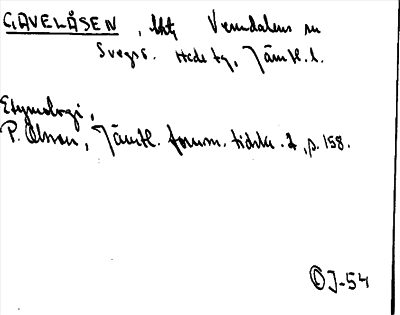 GAVELÅSEN, Vemdalens sn
Svegs s. Hede tg, Jämtl. l.
Etymologi,
P. Olsson, Jämtl. fornm. tidskr. 2, p. 158.
J-54